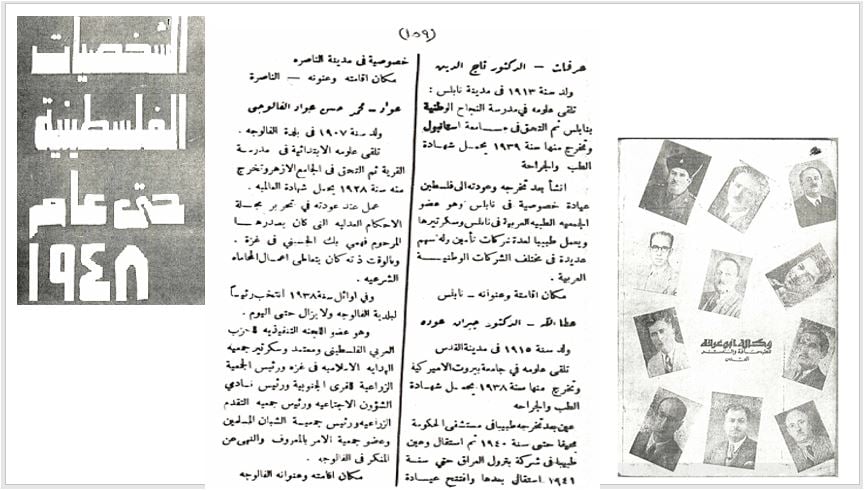 الشخصيات
الفلسطينية
حتى عام
١٩٤٨
(١٥٩)
عرفات – الدكتور تاج الدين
ولد سنة ١٩١٣ فى مدينة نابلس :
تلقى علومه في مدرسة النجاح الوطنية
بنابلس ثم التحق فى جامعة استانبول
وتخرج منها سنة ١٩٣٩ يحمل شهادة
الطب والجراحة
انشأ بعد تخرجه وعودته الى فلسطين
عيادة خصوصية فى نابلس وهو عضو
الجمعيه الطبيه العربية فى نابلس وسكرتيرها
ويعمل طبيبا لعدة شركات تأمين وله سهم
عديدة فى مختلف الشركات الوطنية
العربية .
مكان اقامتة وعنوانه – نابلس
عطا الله – الدكتور جبران عوده
ولد سنة ١٩١٥ فى مدينة القدس
تلقى علومه في جامعة بيروت الاميركية
وتخرج منها سنة ١٩٣٨ يحمل شهادة
الطب والجراحه
عين بعد تخرجه طبيبا فى مستشفى الحكومة
حتى سنة ١٩٤٠ ثم استقال وعين
طبيبا فى شركة بترول العراق حتي سنة
١٩٤٦ استقال بعدها وافتتح عيادة
خصوصية فى مدينة الناصره
مكان اقامته وعنونه – الناصرة
عواد – محمد حسن عواد الفالوجي
ولد سنة ١٩٠٧ فى بلدة الفالوجه .
تلقى علومه الابتدائية فى مدرسة
القرية ثم التحق فى الجامع الازهر وتخرج
منه سنة ١٩٢٨ يحمل شهادة العالميه .
عمل عند عودته في تحرير مجلة
الاحكام العدليه التى كان يصدرها
المرحوم فهمي بك الحسيني فى غزة .
وبالوقت ذته كان يتعاطى اعمال المحاماه
الشرعيه .
وفي اوائل سنة ١٩٣٨ انتخب رئيساً
لبلدية الفالوجه ولا يزال حتى اليوم .
وهو عضو اللجنه التنفيذيه للحزب
العربي الفلسطيني ومعتمد وسكرتير جمعيه
الهدايه الاسلاميه فى غزه ورئيس الجمعية
الزراعية للقرى الجنوبية ورئيس نادي
الشؤون الاجتماعيه ورئيس جمعيه التقدم
الزراعيه ورئيس جمعية الشبان المسلمين
وعضو جمعية الامر بالمعروف والنهى عن
المنكر فى الفالوجه .
مكان اقامته وعنوانه الفالوجه
وكالة ابو عرفة
القدس